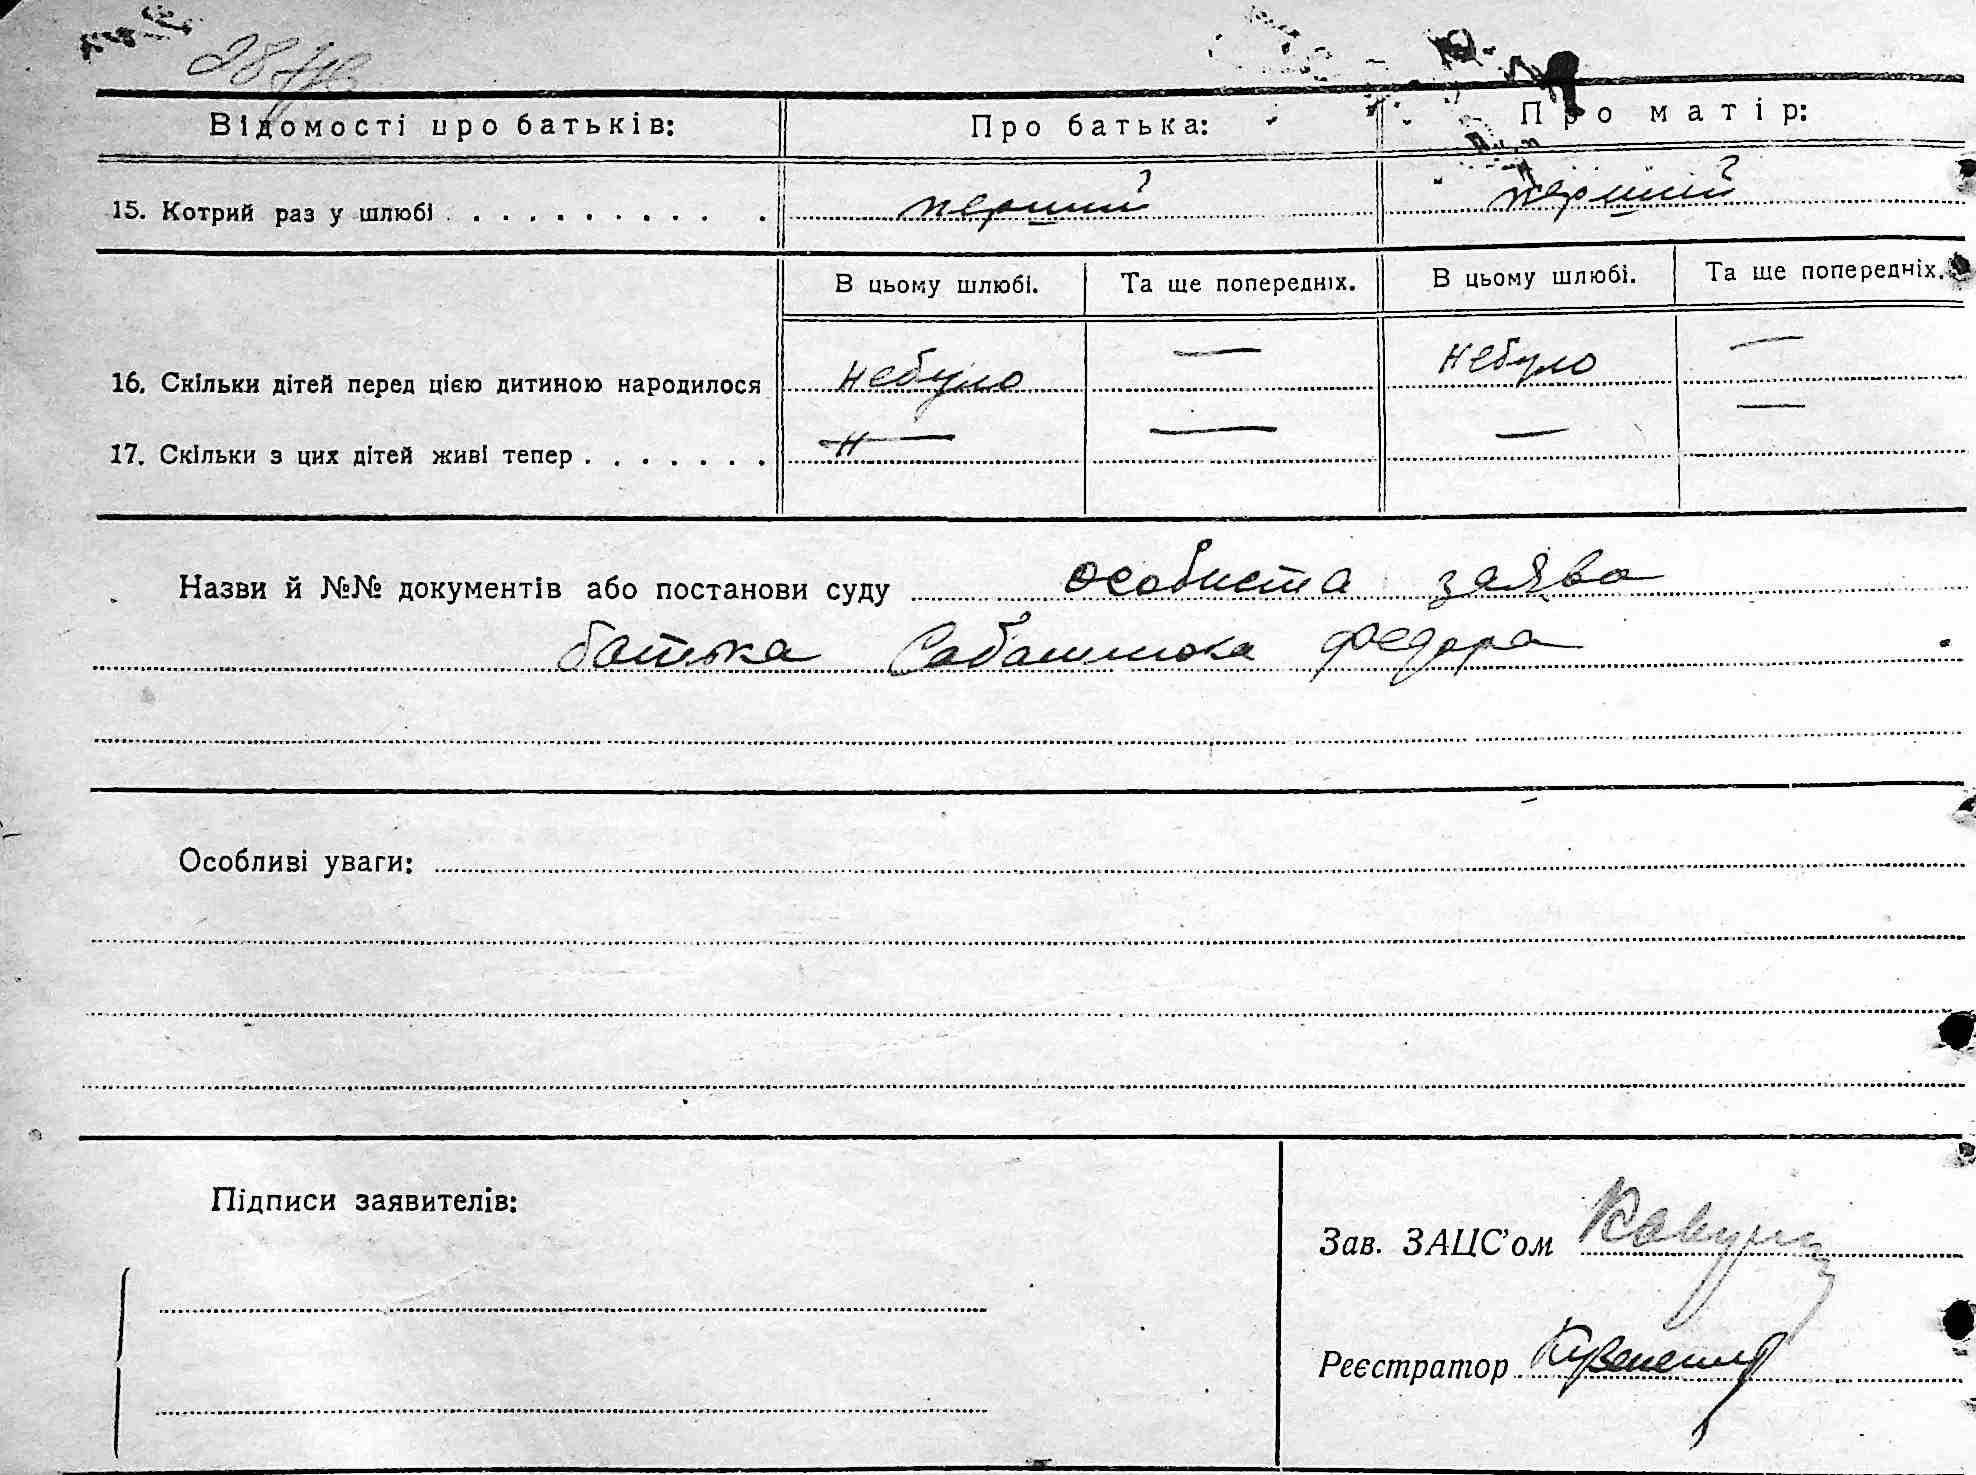 Відомості про батьків: Про батька: Про матір:
15. Котрий раз у шлюбі . . . . . . . . . . . перший перший
В цьому шлюбі. Та ще попередніх. В цьому шлюбі. Та ще попередніх.
16. Скільки дітей перед цією дитиною народилося небуло — небуло —
17. Скільки з цих дітей живі тепер . . . . . . . — н — — — —
Назви й №№ документів або постанови суду особиста заява
батька Федора
Особливі уваги:
Підписи заявителів:
Зав. ЗАЦС'ом
Реєстратор